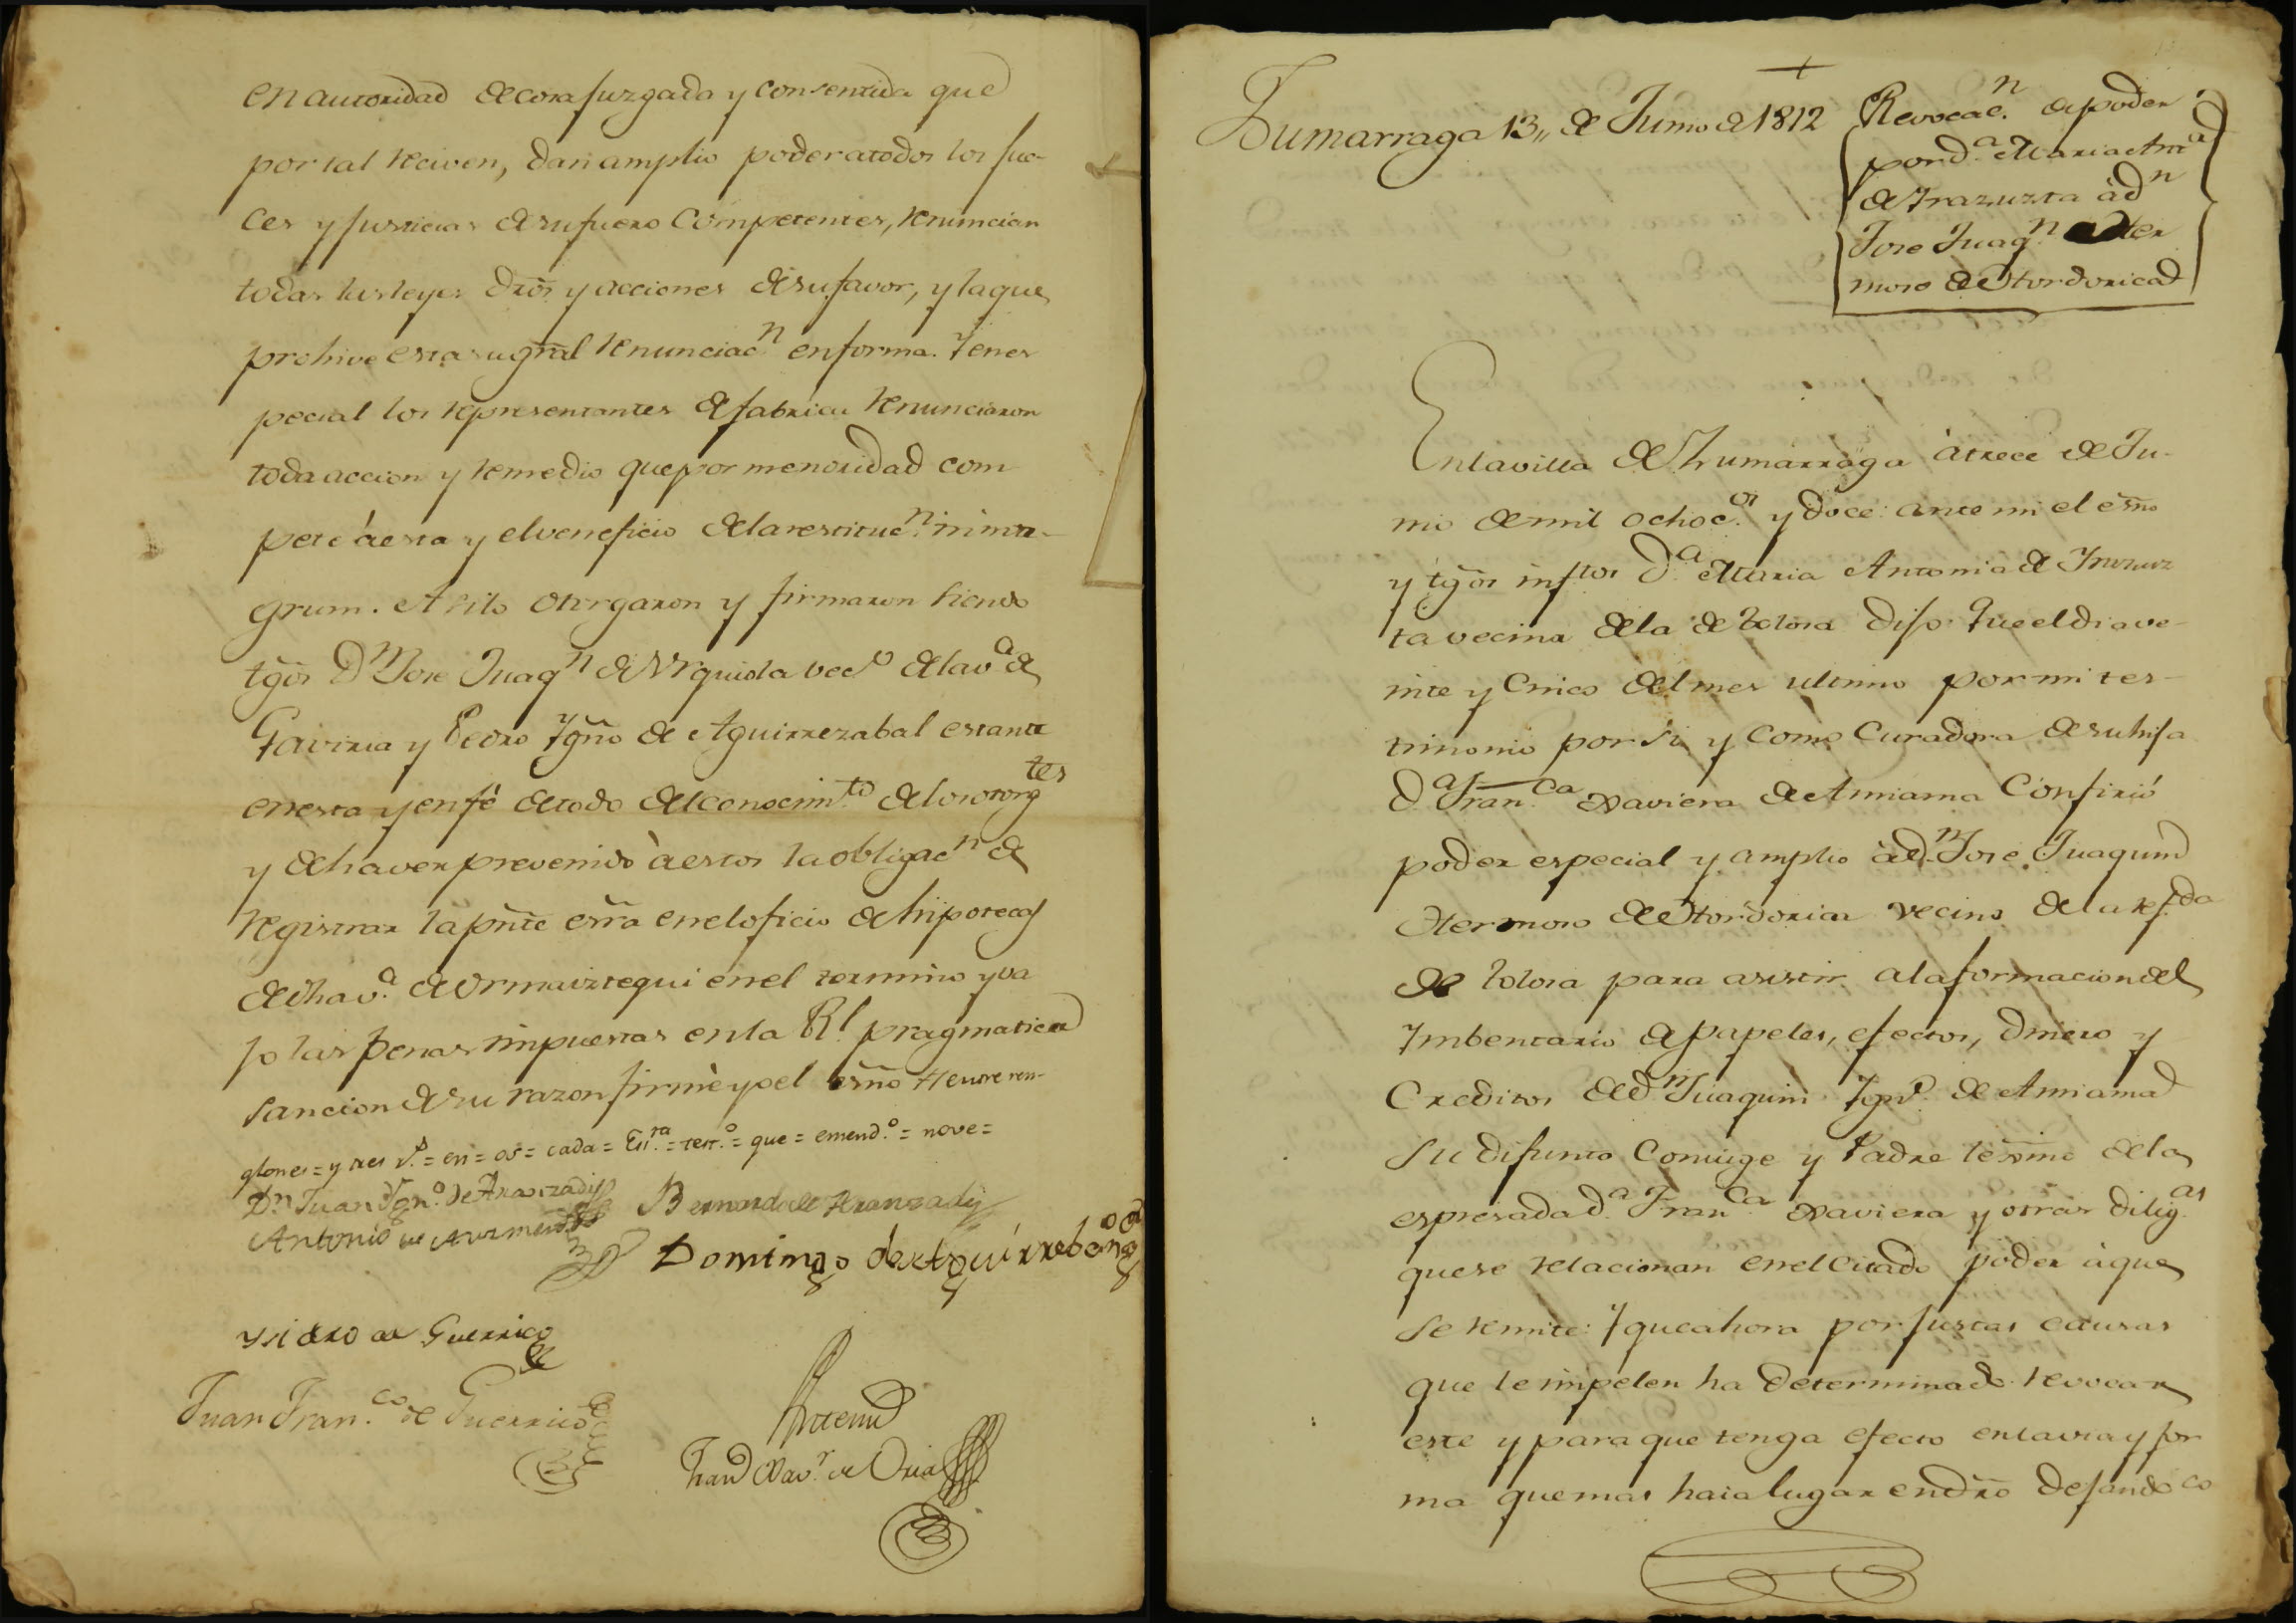 en autoridad de cosa juzgada y consentida que
por tal reciven, dan amplio poder a todos los jue-
ces y justicias de su fuero competentes, renuncian
todas las leyes dr̃os y acciones de su favor, y la que
prohive esta su gr̃al renunciacⁿ. en forma. Y en es
pecial los representantes de fabrica renunciaron
toda accion y remedio que por menoridad com
pete à esta y el veneficio de la restitucⁿ. in inte-
grum. Asi lo otorgaron y firmaron siendo
tg̃os Dⁿ Jose Juaqⁿ de Urquiola vecº de la vª de
Gaviria y Pedro Ygñº de Aguirrezabal estante
en esta y en fé de todo del conocimᵗº. de los otorgᵗᵉˢ
y de haver prevenido à estos la obligacⁿ de
registrar la pñte esr̃ra en el oficio de hipotecas
de dha vª. de Urmaiztegui en el termino y va
jo las penas impuestas en la Rˡ. pragmatica
sancion de su razon firmè yo el esñº = entre ren-
glones = y tres v.º = en = os = cada = Esʳᵃ. = test.º = que = emend.º = nove =
Dⁿ Juan Ygnº. de Aranzadi
Bernardo de Aranzadi
Antonio de
Domingo de Aguirrebengoa
Ysidro de Guerrico
Juan Franᶜº. de Guerrico
Ante mi
Franᶜº Xavʳ. de Oria
+
Zumarraga 13,, de Junio de 1812
Revocacⁿ. de poder
por Dª. Maria Antª
de Yrazuzta à Dⁿ
Jose Juaqⁿ. Her
moso de Otordorica
En la villa de Zumarraga à trece de Ju-
nio de mil ochocᵒˢ. y doce: ante mi el esñº
y tg̃os infᵗᵒˢ Dª. Maria Antonia de Yrazuz
ta vecina de la de Tolosa dijo: Que el dia ve-
inte y cinco del mes ultimo por mi tes-
timonio por si y como Curadora de su hija
Dª Franᶜª Xaviera de Amiama confirió
poder especial y amplio à Dⁿ. Jose Juaquin
Hermoso de Otordorica vecino de la refᵈª
de Tolosa para asistir a la formacion del
Ymbentario de papeles, efectos, dinero y
creditos de Dⁿ Juaquin Ygnº. de Amiama
su difunto Conjuge y Padre lex̃mo de la
espresada Dª. Franᶜª Xaviera y otras diligᵃˢ.
que se relacionan en el citado poder à que
se remite: Y que ahora por justas causas
que le impelen ha determinado revocar
este y para que tenga efecto en la via y for
ma que mas haia lugar en dr̃o dejando co